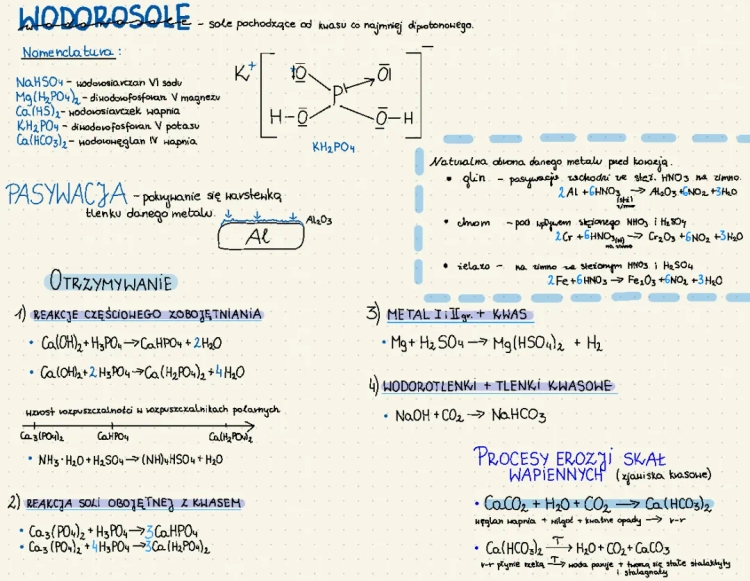 WODOROSOLE - sole pochodzące od kwasu co najmniej diprotonowego.
Nomenclatura:
NaHSO4 - wodorosiarczan VI sodu
Mg(H2PO4)2 - diwodorofosforan V magnezu
Ca(HS)2 - wodorosiarczek wapnia
KH2PO4 - diwodorofosforan V potasu
Ca(HCO3)2 - wodorowęglan IV wapnia
K+
IO OI
P
H-O O-H
−
KH2PO4
PASYWACJA - pokrywanie się warstewką
tlenku danego metalu.
Al2O3
Al
Naturalna obrona danego metalu przed korozją.
• glin - pasywacja zachodzi ze stęż. HNO3 na zimno.
2Al + 6HNO3 → Al2O3 + 6NO2 + 3H2O
(stęż)
zimno
• chrom - pod wpływem stężonego NHO3 i H2SO4
2Cr + 6HNO3 → Cr2O3 + 6NO2 + 3H2O
na zimno
• żelazo - na zimno ze stężonym HNO3 i H2SO4
2Fe + 6HNO3 → Fe2O3 + 6NO2 + 3H2O
OTRZYMYWANIE
1) REAKCJE CZĘŚCIOWEGO ZOBOJĘTNIANIA
• Ca(OH)2 + H3PO4 → CaHPO4 + 2H2O
• Ca(OH)2 + 2H3PO4 → Ca(H2PO4)2 + 4H2O
wzrost rozpuszczalności w rozpuszczalnikach polarnych
Ca3(PO4)2 CaHPO4 Ca(H2PO4)2
• NH3·H2O + H2SO4 → (NH)4HSO4 + H2O
2) REAKCJA SOLI OBOJĘTNEJ Z KWASEM
• Ca3(PO4)2 + H3PO4 → 3CaHPO4
• Ca3(PO4)2 + 4H3PO4 → 3Ca(H2PO4)2
3) METAL I i II gr. + KWAS
• Mg + H2SO4 → Mg(HSO4)2 + H2
4) WODOROTLENKI + TLENKI KWASOWE
• NaOH + CO2 → NaHCO3
PROCESY EROZJI SKAŁ
WAPIENNYCH (zjawiska krasowe)
• CaCO2 + H2O + CO2 → Ca(HCO3)2
węglan wapnia + wilgoć + kwaśne opady → r-r
• Ca(HCO3)2 T→ H2O + CO2 + CaCO3
r-r płynie rzeką T→ woda paruje + tworzą się stałe stalaktyty
i stalagnaty